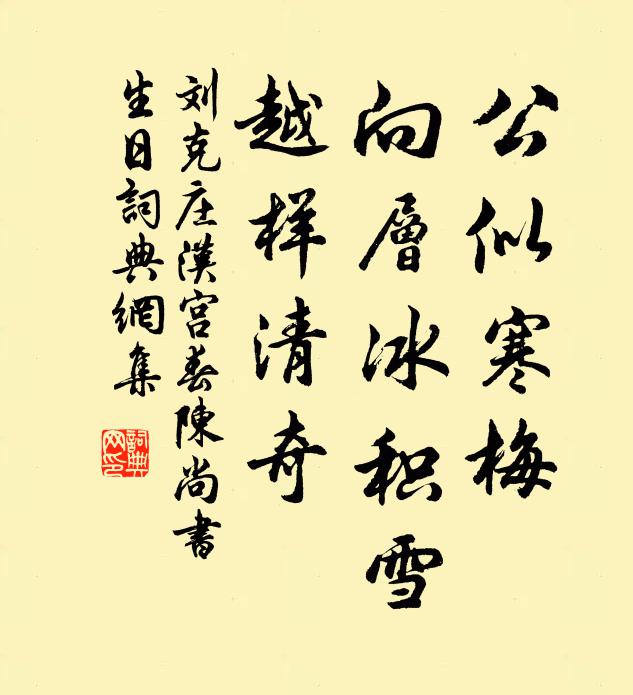 公似寒梅
向層冰积雪
越样清奇
刘克庄漢宫春陳尚書
生日詞典網集
詞典
网印